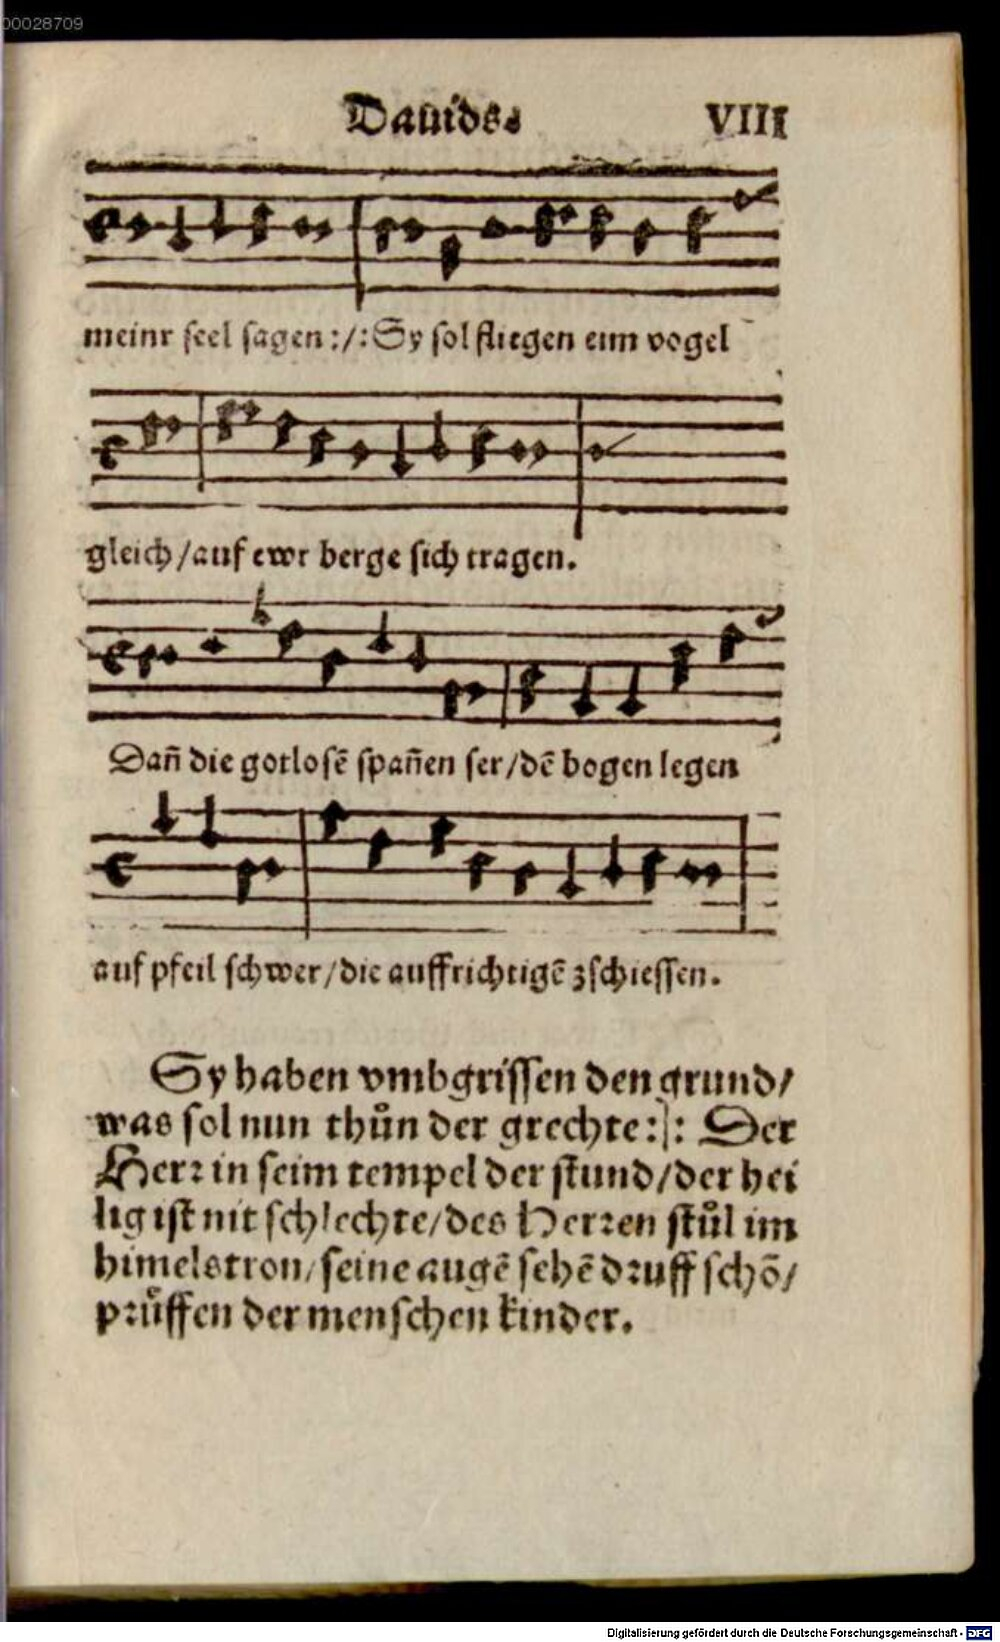 00028709
Dauids. VIII
meinr seel sagen :/: Sy sol fliegen eim vogel
gleich / auf ewr berge sich tragen.
Dañ die gotlosẽ spañen ser / dẽ bogen legen
auf pfeil schwer / die auffrichtigẽ zschiessen.
Sy haben vmbgrissen den grund /
was sol nun thůn der grechte :|: Der
Herr in seim tempel der stund / der hei
lig ist nit schlechte / des Herren stůl im
himelstron / seine augẽ sehẽ druff schõ /
průffen der menschen kinder.
Digitalisierung gefördert durch die Deutsche Forschungsgemeinschaft - DFG